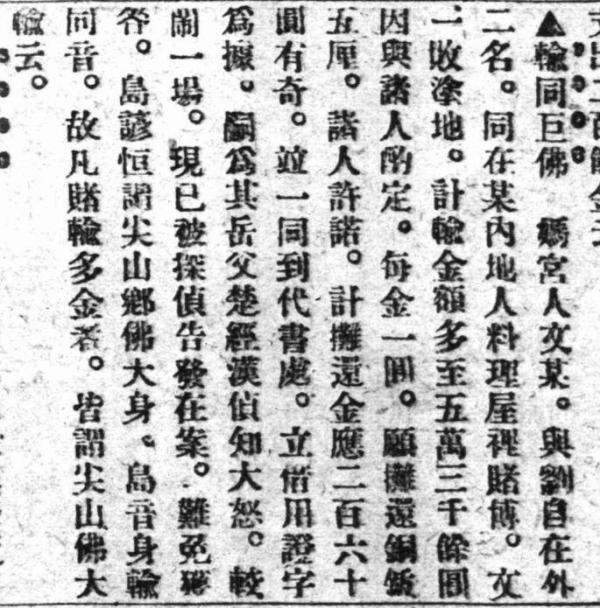 ▲輸同巨佛　媽宮人文某。與劉自在外
二名。同在某內地人料理屋裡賭博。文
一敗塗地。計輸金額多至五萬三千餘圓
因與諸人酌定。每金一圓。願攤還銅銭
五厘。諸人許諾。計攤還金應二百六十
圓有奇。竝一同到代書處。立借用證字
為據。嗣為其岳父楚經漢偵知大怒。較
鬧一場。現已被探偵告發在案。難免獲
咎。島諺恒謂尖山鄉佛大身。島音身輸
同音。故凡賭輸多金者。皆謂尖山佛大
輸云。